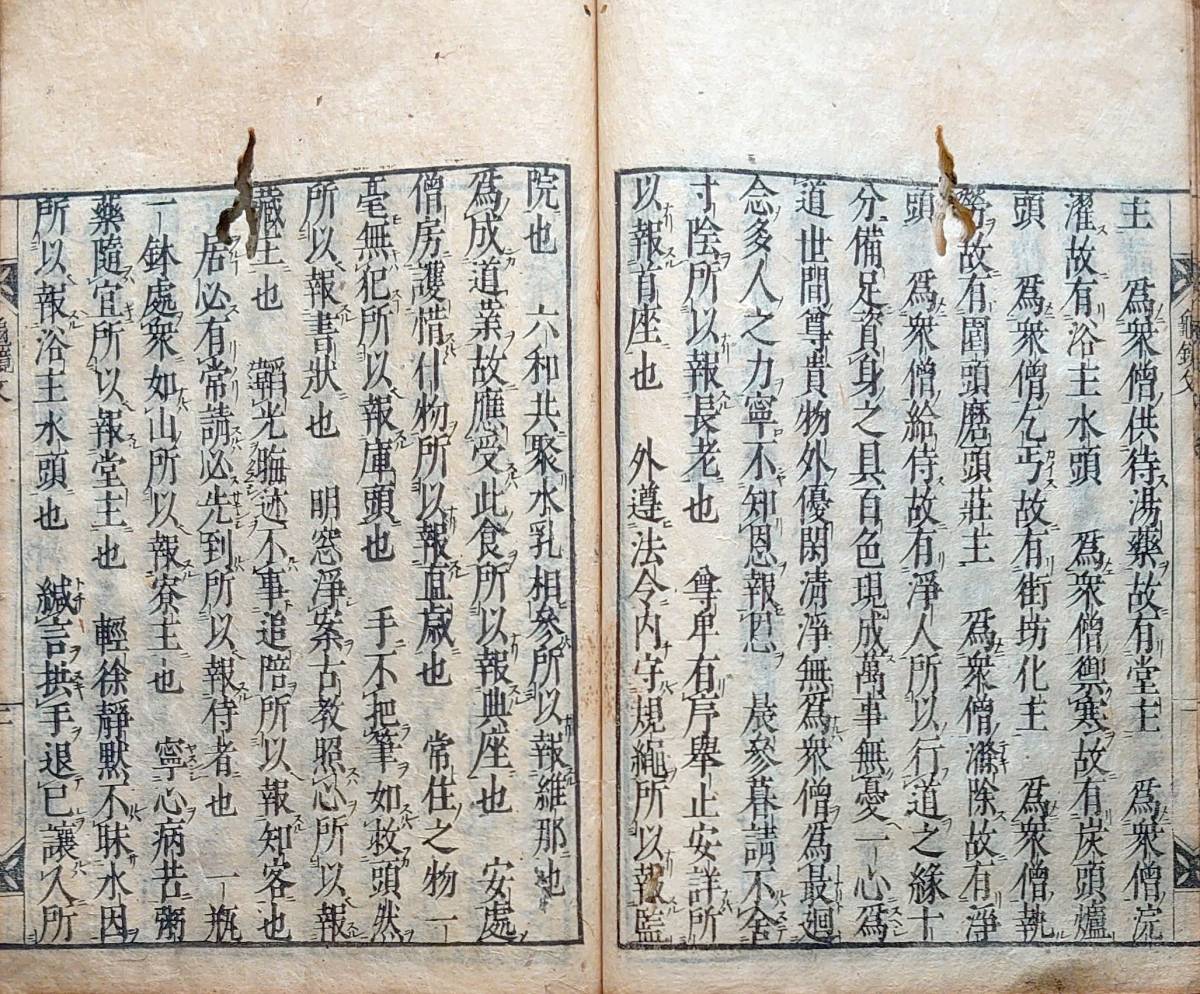 主　爲衆僧供待湯藥故有堂主　爲衆僧浣
濯故有浴主水頭　爲衆僧禦寒故有炭頭爐
頭　爲衆僧乞丐故有街坊化主　爲衆僧執
勞故有園頭磨頭莊主　爲衆僧滌除故有淨
頭　爲衆僧給侍故有淨人所以行道之緣十
分備足資身之具百色現成萬事無憂一心爲
道世間尊貴物外優閑淸淨無爲衆僧爲最廻
念多人之力寧不知恩報恩　晨參暮請不舍
寸陰所以報長老也　尊卑有序舉止安詳所
以報首座也　外遵法令内守規繩所以報監
院也　六和共聚水乳相參所以報維那也
爲成道業故應受此食所以報典座也　安處
僧房護惜什物所以報直歲也　常住之物一
毫無犯所以報庫頭也　手不把筆如救頭然
所以報書狀也　明窓淨案古教照心所以報
藏主也　韜光晦迹不事追陪所以報知客也
居必有常請必先到所以報侍者也　一瓶
一鉢處衆如山所以報寮主也　寧心病苦粥
藥隨宜所以報堂主也　輕徐靜默不昧水因
所以報浴主水頭也　緘言拱手退已讓人所